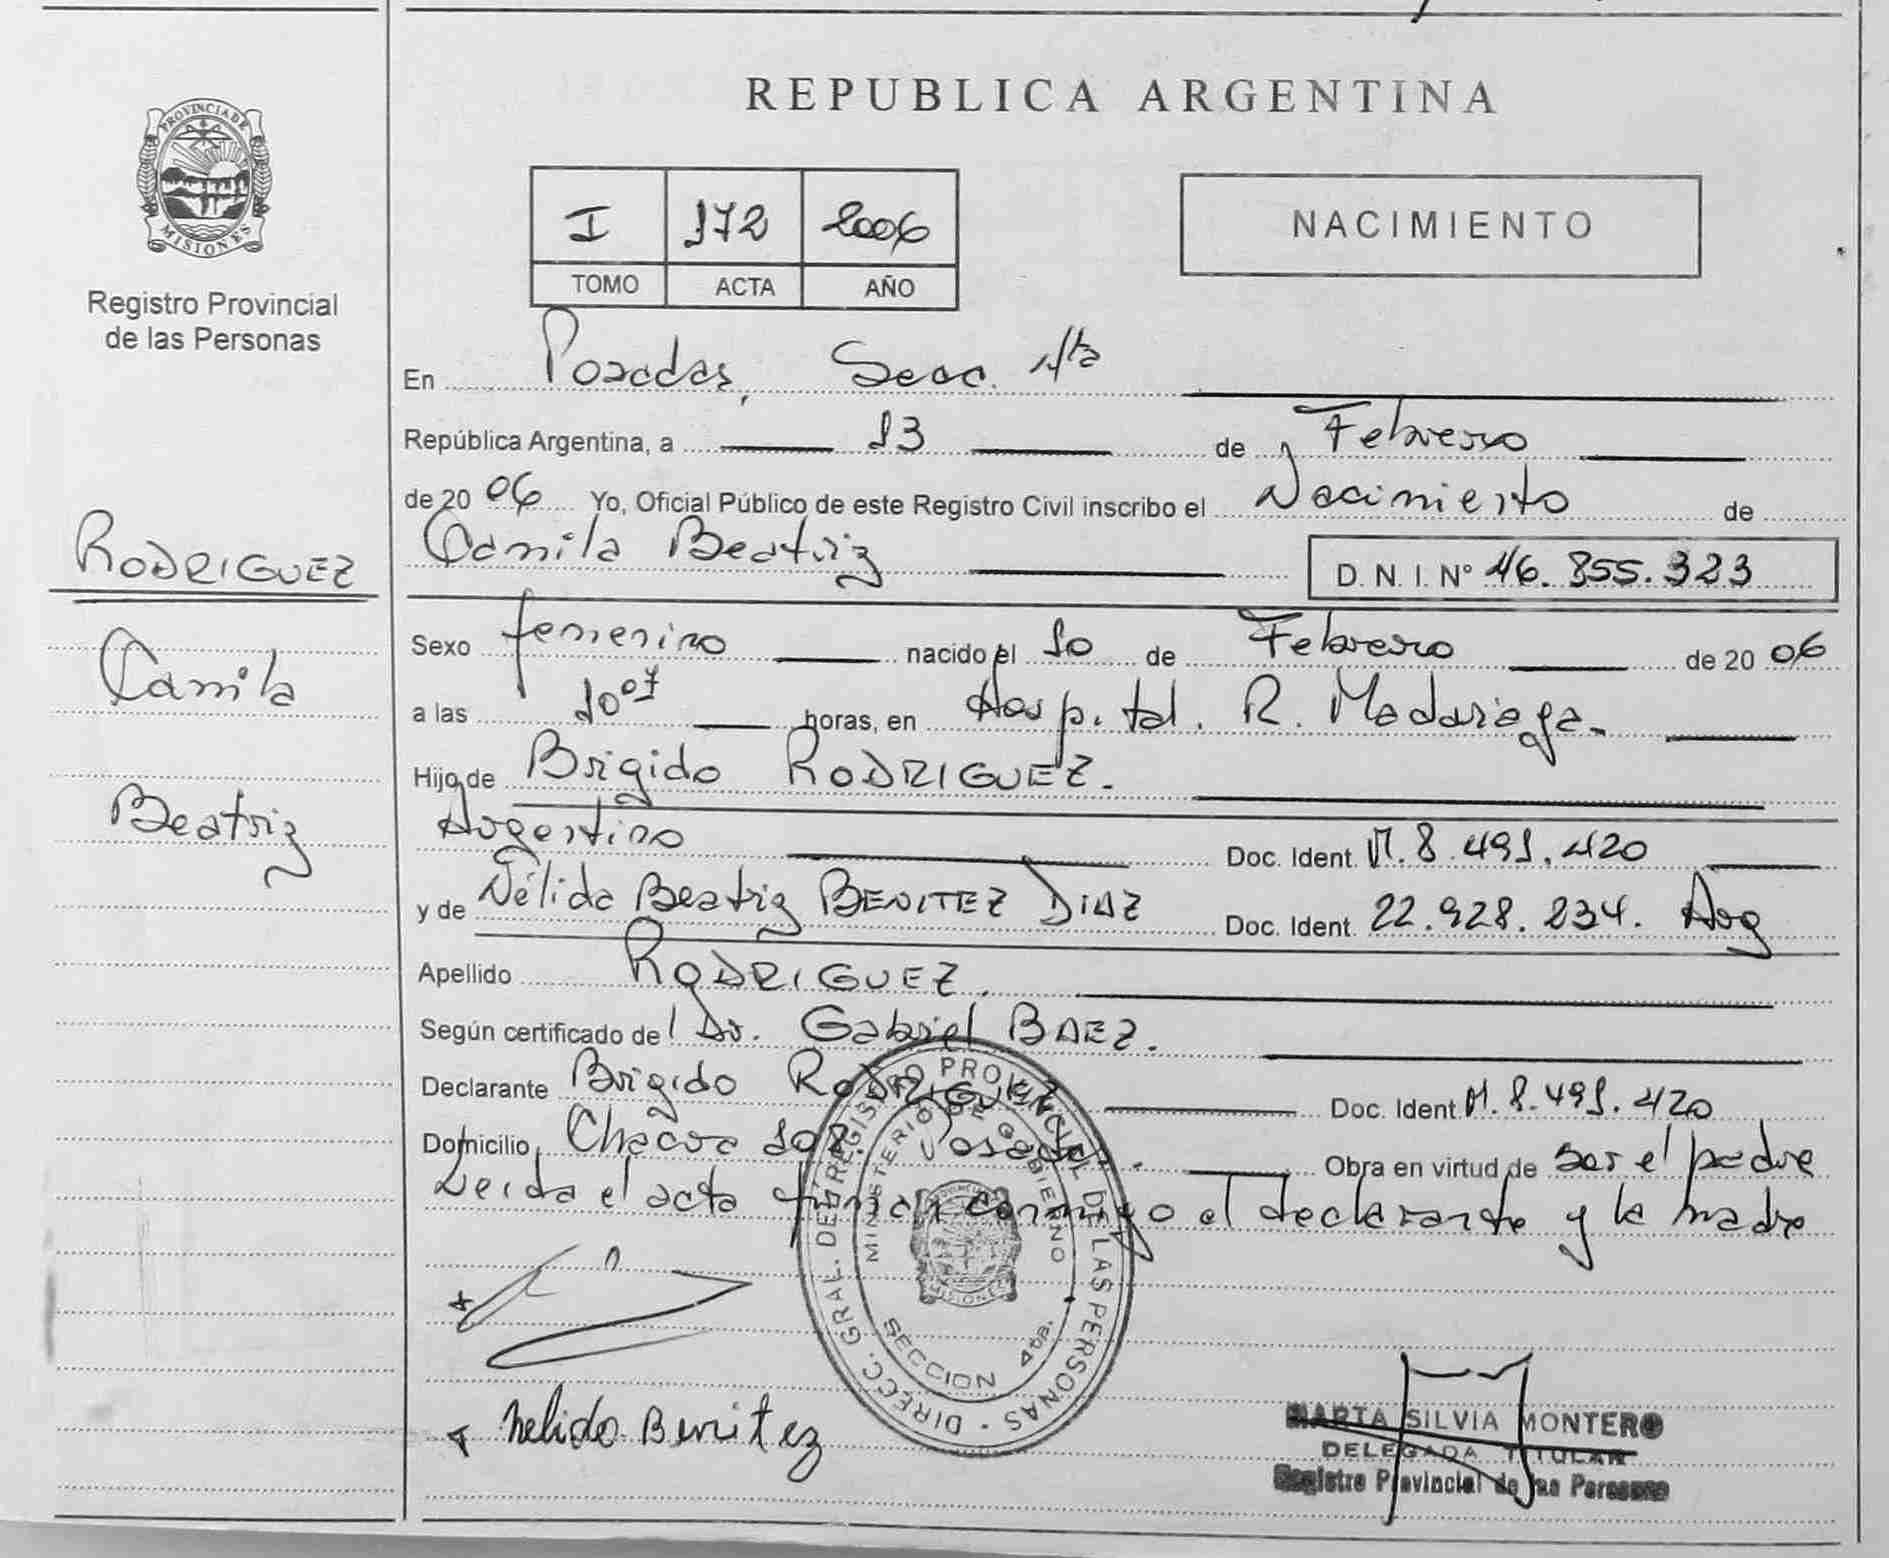 REPUBLICA ARGENTINA
PROVINCIA DE
MISIONES
Registro Provincial
de las Personas
I 172 2006
TOMO ACTA AÑO
NACIMIENTO
En Posadas, Secc. 4ta
República Argentina, a 13 de Febrero
de 20 06 Yo, Oficial Público de este Registro Civil inscribo el Nacimiento de
Camila Beatriz D. N. I. Nº 46.855.323
RODRIGUEZ
Camila
Beatriz
Sexo femenino nacido el 10 de Febrero de 20 06
a las 10 07 horas, en Hospital. R. Madariaga.
Hijo de Brigido RODRIGUEZ.
Argentino Doc. Ident. M. 8.491.420
y de Nélida Beatriz BENITEZ DIAZ Doc. Ident. 22.928.234. Arg
Apellido RODRIGUEZ.
Según certificado de l Dr. Gabriel BAEZ.
Declarante Brigido RODRIGUEZ Doc. Ident. M. 8.491.420
Domicilio Chacra 102. Posadas. Obra en virtud de ser el padre
Leida el acta firman conmigo el declarante y la madre
DIRECC. GRAL. DEL REGISTRO PROVINCIAL DE LAS PERSONAS
MINISTERIO DE GOBIERNO
MISIONES
SECCION 4ta.
Nelida Benitez
MARTA SILVIA MONTERO
DELEGADA TITULAR
Registro Provincial de las Personas